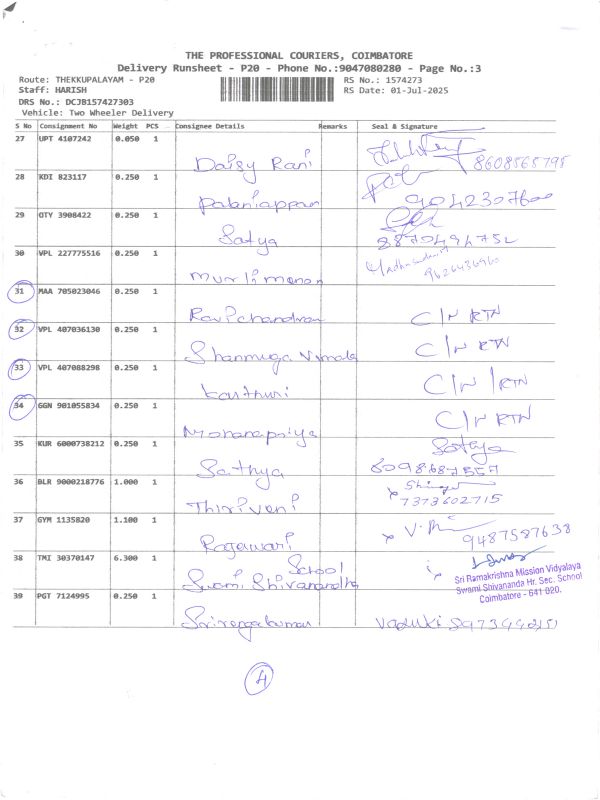 THE PROFESSIONAL COURIERS, COIMBATORE
Delivery Runsheet - P20 - Phone No.:9047080280 - Page No.:3
Route: THEKKUPALAYAM - P20 RS No.: 1574273
Staff: HARISH RS Date: 01-Jul-2025
DRS No.: DCJB157427303
Vehicle: Two Wheeler Delivery
S No Consignment No Weight PCS Consignee Details Remarks Seal & Signature
27 UPT 4107242 0.050 1
Daisy Rani 8608565795
28 KDI 823117 0.250 1
Palaniappan 9042307600
29 QTY 3908422 0.250 1
Satya
30 VPL 227775516 0.250 1
31 MAA 705023046 0.250 1
Ravichandran C/N RTN
32 VPL 407036130 0.250 1
Shanmuga Vimala C/N RTN
33 VPL 407088298 0.250 1
Kasthuri C/N RTN
34 GGN 901055834 0.250 1
Mohanapriya C/N RTN
35 KUR 6000738212 0.250 1 Sathya
Sathya
36 BLR 9000218776 1.000 1
Thiriveni 7373602715
37 GYM 1135820 1.100 1
Rajeswari 9487587638
38 TMI 30370147 6.300 1
School
Swami Shivanandha
Sri Ramakrishna Mission Vidyalaya
Swami Shivananda Hr. Sec. School
Coimbatore - 641 020.
39 PGT 7124995 0.250 1
Srirengakumar
4